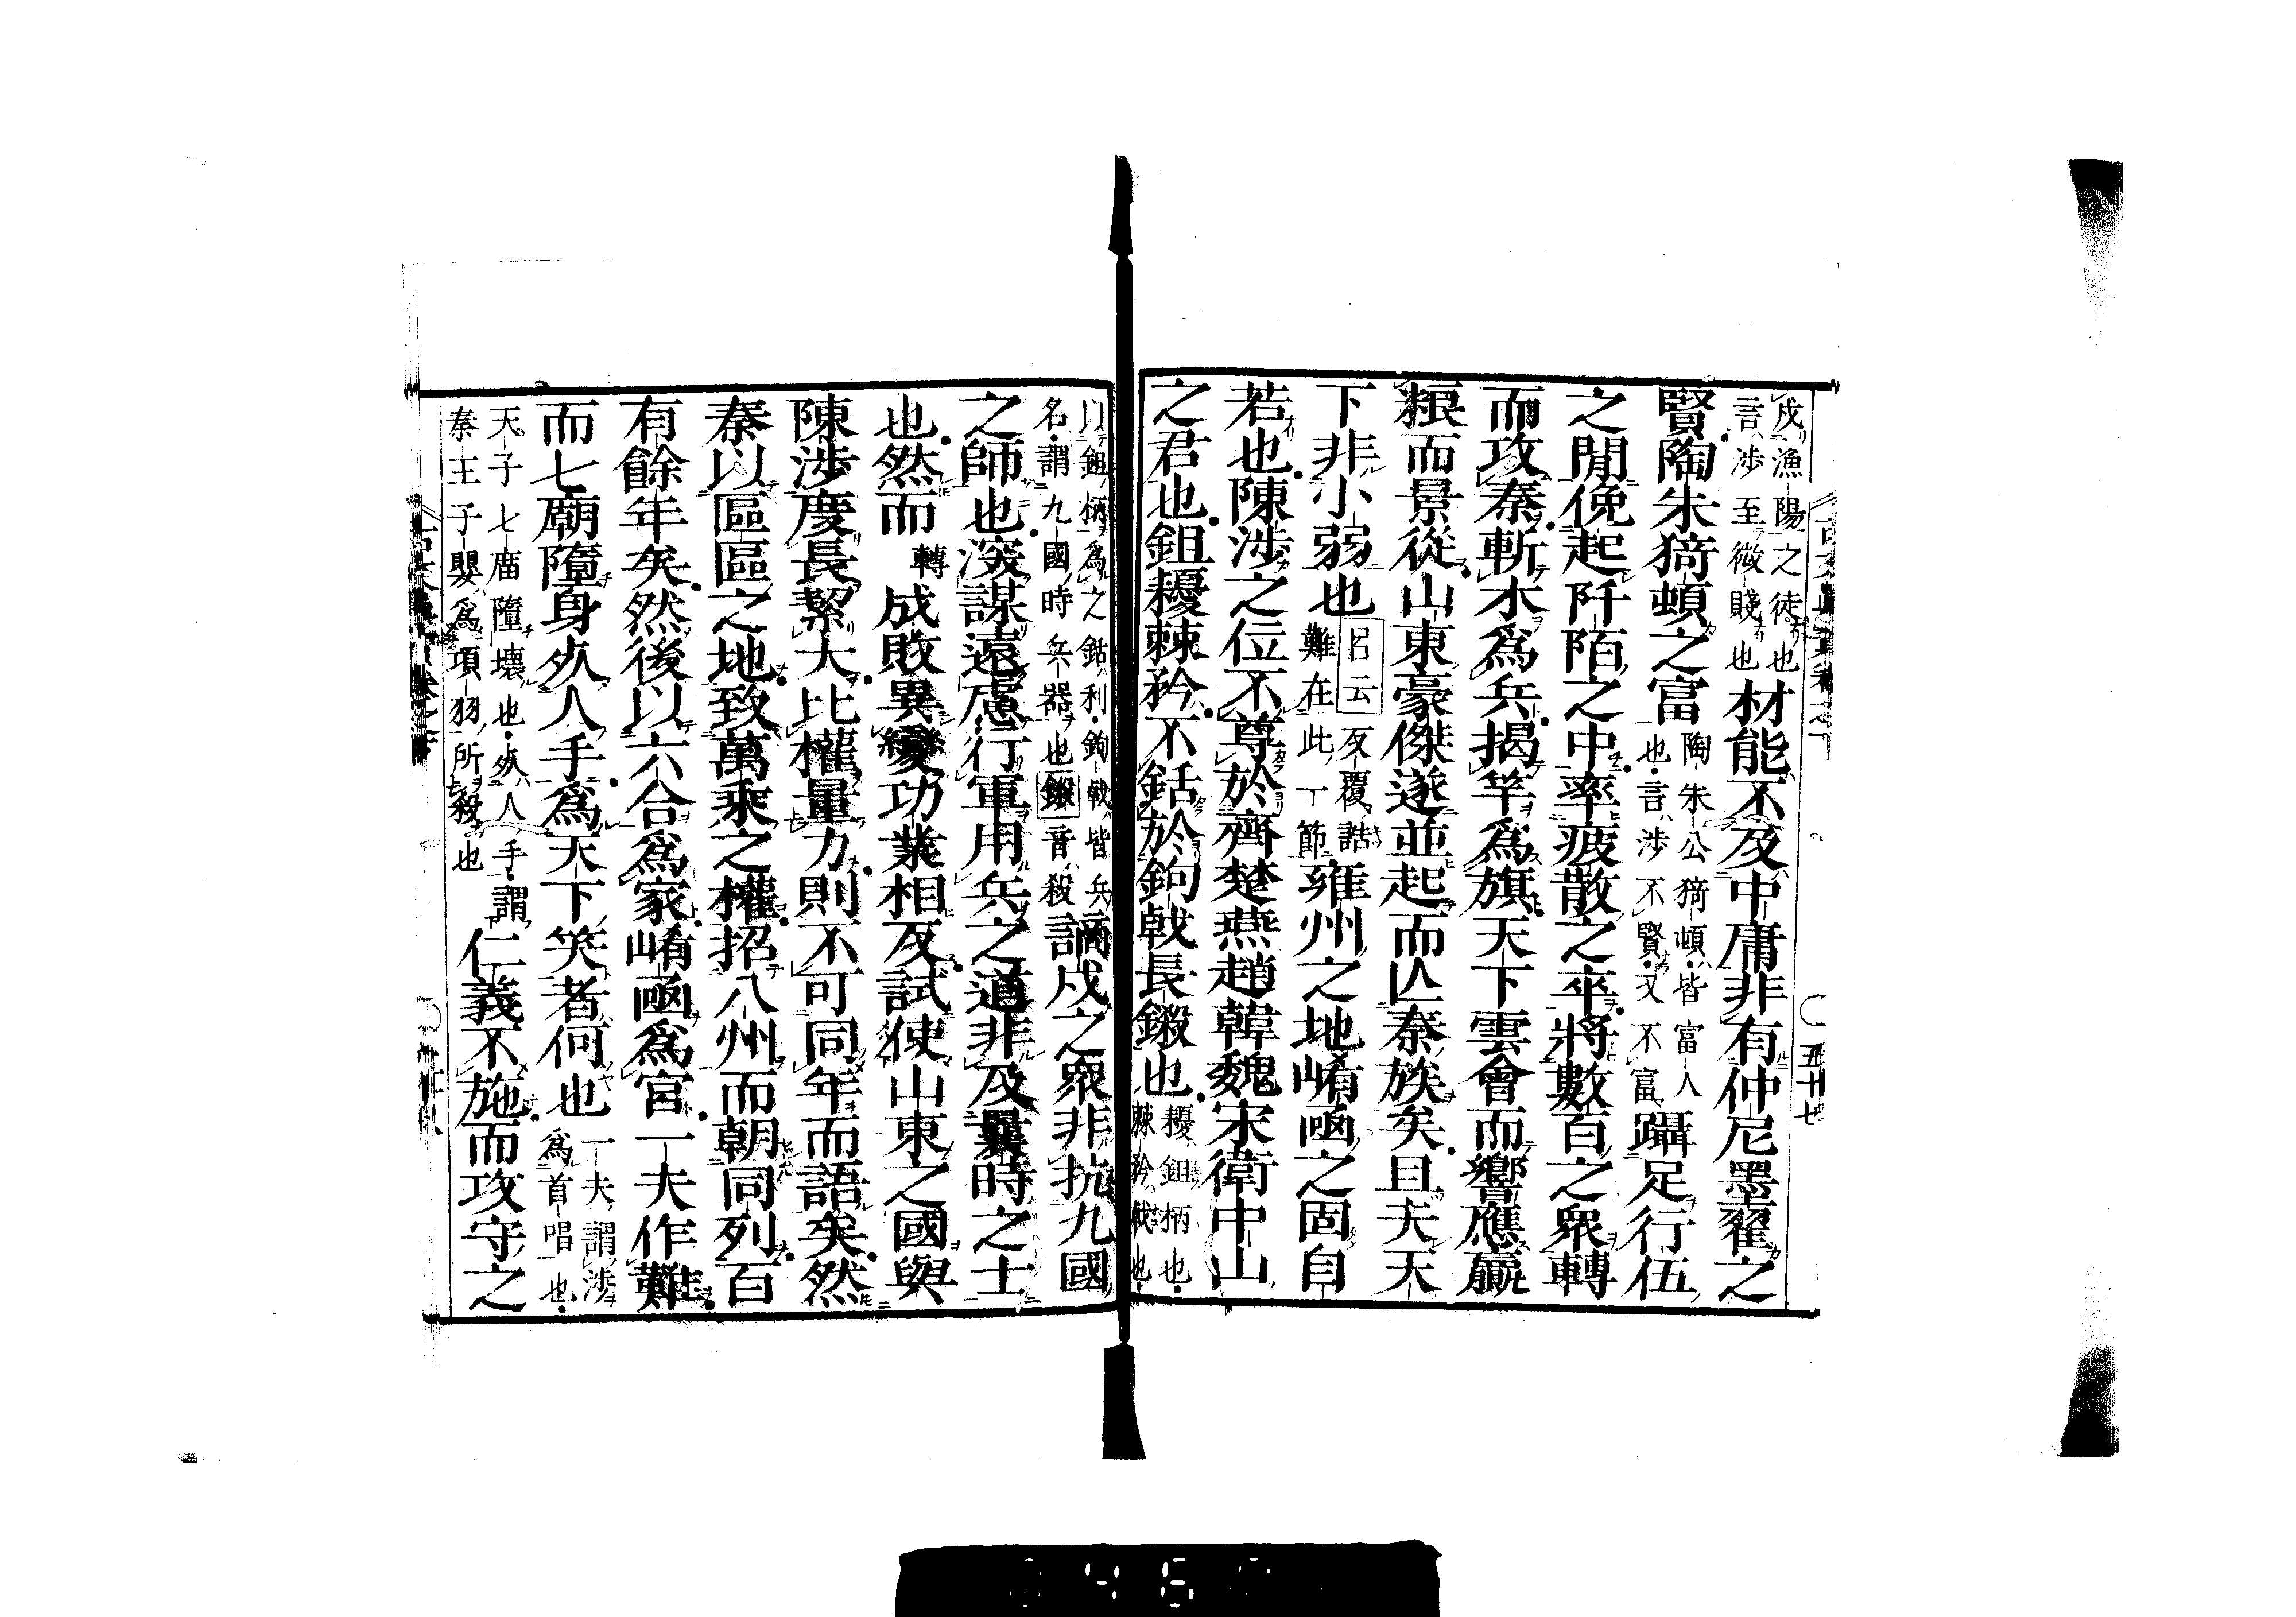 戍漁陽之徒也
言渉至微賤也
材能不及中庸非有仲尼墨翟之
賢陶朱猗頓之富
陶朱公猗頓皆富人
也言渉不賢又不富
躡足行伍
之間俛起阡陌之中率疲散之卒將數百之衆轉
而攻秦斬木爲兵掲竿爲旗天下雲會而響應贏
粮而景從山東豪傑遂並起而亾秦族矣且夫天
下非小弱也
呂云反覆詰
難在此一節
雍州之地崤凾之固自
若也陳渉之位不尊於齊楚燕趙韓魏宋衛中山
之君也鉏耰棘矜不銛於鉤戟長鎩也
耰鉏柄也
棘矜戟也
以鉏柄爲之銛利鉤戟皆兵
名謂九國時兵器也鎩音殺
謫戍之衆非抗九國
之師也深謀遠慮行軍用兵之道非及曩時之士
也然而
轉
成敗異變功業相反試使山東之國與
陳渉度長絜大比權量力則不可同年而語矣然
秦以區區之地致萬乘之權招八州而朝同列百
有餘年矣然後以六合爲家崤凾爲宮一夫作難
而七廟隳身死人手爲天下笑者何也
一夫謂渉
爲首唱也
天子七廟隳壞也死人手謂
秦王子嬰爲項羽所殺也
仁義不施而攻守之